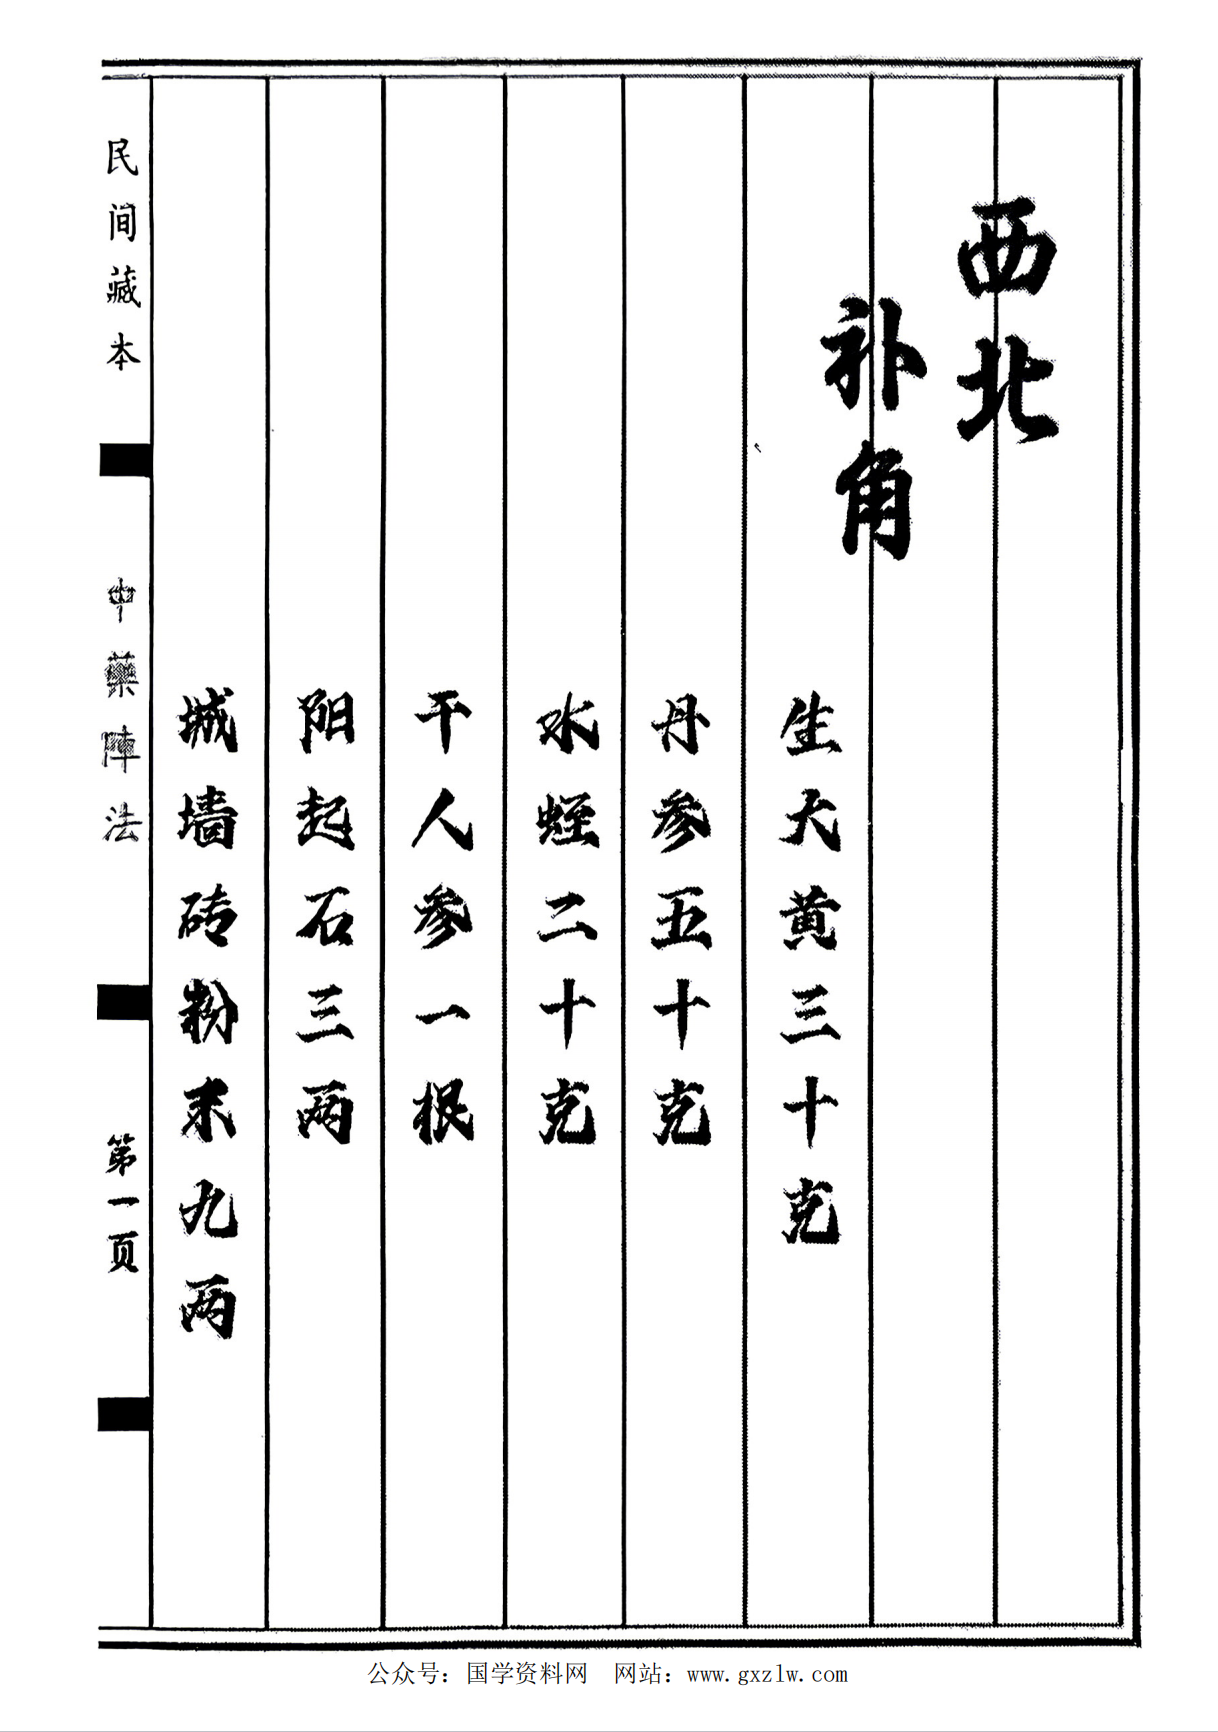 西北
补角
生大黄三十克
丹参五十克
水蛭二十克
干人参一根
阳起石三两
城墙砖粉末九两
民间藏本
中藥陣法
第一页
公众号：国学资料网 网站：www.gxzlw.com